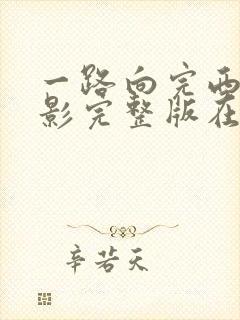 一路向完西
影完整版在
辛若天